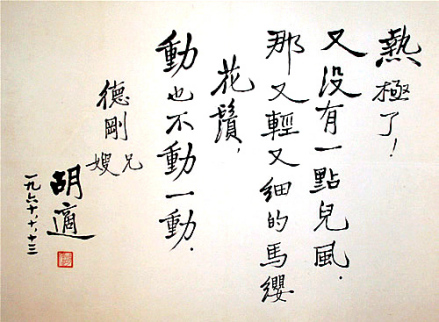 熱極了!
又没有一點兒風.
那又輕又細的馬纓
花鬚,
動也不動一動.
德剛兄嫂
胡適
一九六十,十,十三